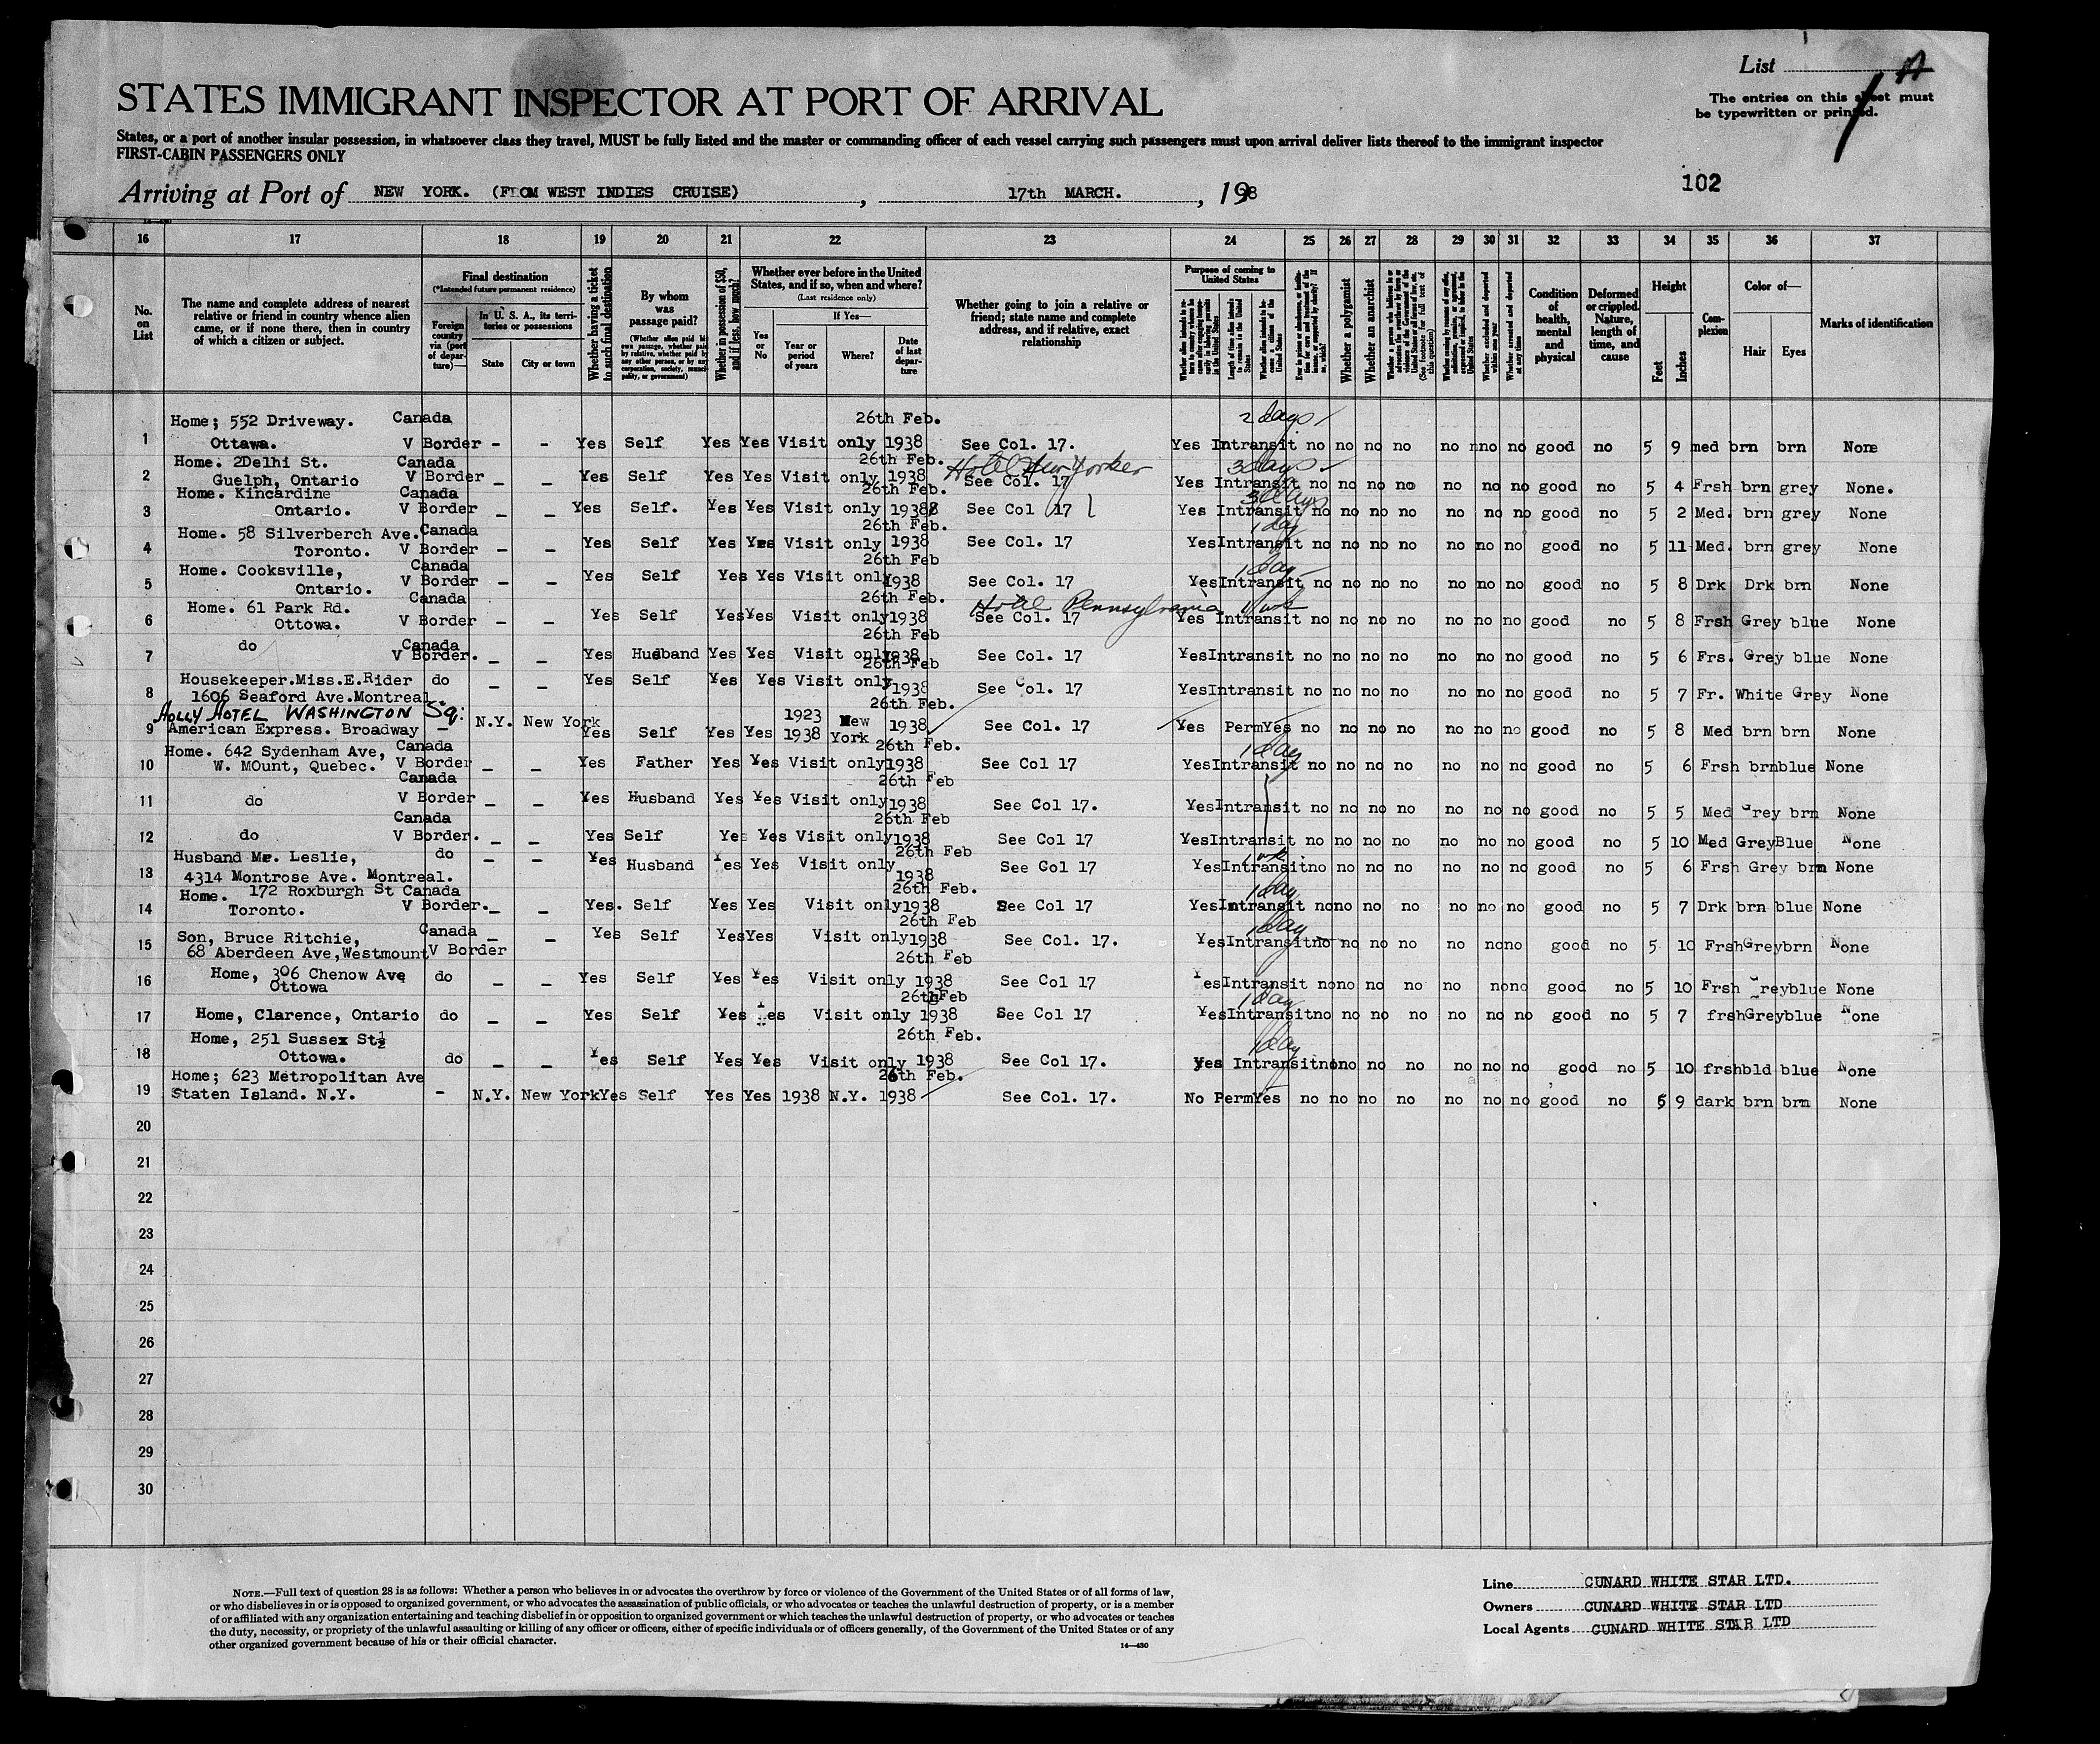 List
STATES IMMIGRANT INSPECTOR AT PORT OF ARRIVAL
The entries on this sheet must
be typewritten or printed.
States, or a port of another insular possession, in whatsoever class they travel, MUST be fully listed and the master or commanding officer of each vessel carrying such passengers must upon arrival deliver lists thereof to the immigrant inspector
FIRST-CABIN PASSENGERS ONLY
102
Arriving at Port of NEW YORK. (FROM WEST INDIES CRUISE), 17th MARCH., 1938
16 17 18 19 20 21 22 23 24 25 26 27 28 29 30 31 32 33 34 35 36 37
No. on List
The name and complete address of nearest relative or friend in country whence alien came, or if none there, then in country of which a citizen or subject.
Final destination
(*Intended future permanent residence)
Foreign country via (port of departure)—
In U. S. A., its territories or possessions
State City or town
Whether having a ticket to such final destination
By whom was passage paid?
(Whether alien paid his own passage, whether paid by relative, whether paid by any other person, or by any corporation, society, municipality, or government)
Whether in possession of $50, and if less, how much?
Whether ever before in the United States, and if so, when and where?
(Last residence only)
Yes or No
If Yes—
Year or period of years
Where?
Date of last departure
Whether going to join a relative or friend; state name and complete address, and if relative, exact relationship
Purpose of coming to United States
Length of time alien intends to remain in the United States
Whether a polygamist
Whether an anarchist
(See footnote for full text of this question)
Whether arrested and deported at any time
Condition of health, mental and physical
Deformed or crippled. Nature, length of time, and cause
Height
Feet Inches
Complexion
Color of—
Hair Eyes
Marks of identification
Home; 552 Driveway. Canada 26th Feb. 2 days
1 Ottawa. V Border - - Yes Self Yes Yes Visit only 1938 See Col. 17. Yes Intransit no no no no no no no good no 5 9 med brn brn None
Home. 2Delhi St. Canada 26th Feb. Hotel New Yorker 3 days
2 Guelph, Ontario V Border - - Yes Self Yes Yes Visit only 1938 See Col. 17 Yes Intransit no no no no no no no good no 5 4 Frsh brn grey None.
Home. Kincardine Canada 26th Feb. 3 days
3 Ontario. V Border - - Yes Self. Yes Yes Visit only 1938 See Col 17 Yes Intransit no no no no no no no good no 5 2 Med. brn grey None
Home. 58 Silverberch Ave. Canada 26th Feb. 1 day
4 Toronto. V Border - - Yes Self Yes Yes Visit only 1938 See Col. 17 Yes Intransit no no no no no no no good no 5 11 Med. brn grey None
Home. Cooksville, Canada 26th Feb 1 day
5 Ontario. V Border - - Yes Self Yes Yes Visit only 1938 See Col. 17 Yes Intransit no no no no no no no good no 5 8 Drk Drk brn None
Home. 61 Park Rd. Canada 26th Feb. Hotel Pennsylvania 1 wk
6 Ottowa. V Border - - Yes Self Yes Yes Visit only 1938 See Col. 17 Yes Intransit no no no no no no no good no 5 8 Frsh Grey blue None
do Canada 26th Feb
7 V Border. - - Yes Husband Yes Yes Visit only 1938 See Col. 17 Yes Intransit no no no no no no no good no 5 6 Frs. Grey blue None
Housekeeper.Miss.E.Rider do 26th Feb
8 1606 Seaford Ave.Montreal - - Yes Self Yes Yes Visit only 1938 See Col. 17 Yes Intransit no no no no no no no good no 5 7 Fr. White Grey None
HOLLY HOTEL WASHINGTON Sq: 1923 26th Feb.
9 American Express. Broadway - N.Y. New York Yes Self Yes Yes 1938 New York 1938 See Col. 17 Yes Perm Yes no no no no no no no good no 5 8 Med brn brn None
Home. 642 Sydenham Ave, Canada 26th Feb. 1 day
10 W. MOunt, Quebec. V Border - - Yes Father Yes Yes Visit only 1938 See Col 17 Yes Intransit no no no no no no no good no 5 6 Frsh brn blue None
Canada 26th Feb
11 do V Border - - Yes Husband Yes Yes Visit only 1938 See Col 17. Yes Intransit no no no no no no no good no 5 5 Med Grey brn None
Canada 26th Feb
12 do V Border. - - Yes Self Yes Yes Visit only 1938 See Col 17 Yes Intransit no no no no no no no good no 5 10 Med Grey Blue None
Husband Mr. Leslie, do 26th Feb 1 wk
13 4314 Montrose Ave. Montreal. - - Yes Husband Yes Yes Visit only 1938 See Col 17 Yes Intransit no no no no no no no good no 5 6 Frsh Grey brn None
Home. 172 Roxburgh St Canada 26th Feb. 1 day
14 Toronto. V Border. - - Yes. Self Yes Yes Visit only 1938 See Col 17 Yes Intransit no no no no no no no good no 5 7 Drk brn blue None
Son, Bruce Ritchie, Canada 26th Feb 1 day
15 68 Aberdeen Ave,Westmount V Border - - Yes Self Yes Yes Visit only 1938 See Col. 17. Yes Intransit no no no no no no no good no 5 10 Frsh Grey brn None
Home, 306 Chenow Ave 26th Feb
16 Ottowa do - - Yes Self Yes Yes Visit only 1938 See Col 17 Yes Intransit no no no no no no no good no 5 10 Frsh Grey blue None
26th Feb 1 day
17 Home, Clarence, Ontario do - - Yes Self Yes Yes Visit only 1938 See Col 17 Yes Intransit no no no no no no no good no 5 7 frsh Grey blue None
Home, 251 Sussex St½ 26th Feb. 1 day
18 Ottowa. do - - Yes Self Yes Yes Visit only 1938 See Col 17. Yes Intransit no no no no no no no good no 5 10 frsh bld blue None
Home; 623 Metropolitan Ave 26th Feb.
19 Staten Island. N.Y. - N.Y. New York Yes Self Yes Yes 1938 N.Y. 1938 See Col. 17. No Perm Yes no no no no no no no good no 5 9 dark brn brn None
20
21
22
23
24
25
26
27
28
29
30
NOTE.—Full text of question 28 is as follows: Whether a person who believes in or advocates the overthrow by force or violence of the Government of the United States or of all forms of law,
or who disbelieves in or is opposed to organized government, or who advocates the assassination of public officials, or who advocates or teaches the unlawful destruction of property, or is a member
of or affiliated with any organization entertaining and teaching disbelief in or opposition to organized government or which teaches the unlawful destruction of property, or who advocates or teaches
the duty, necessity, or propriety of the unlawful assaulting or killing of any officer or officers, either of specific individuals or of officers generally, of the Government of the United States or of any
other organized government because of his or their official character.
14—430
Line CUNARD WHITE STAR LTD.
Owners CUNARD WHITE STAR LTD
Local Agents CUNARD WHITE STAR LTD